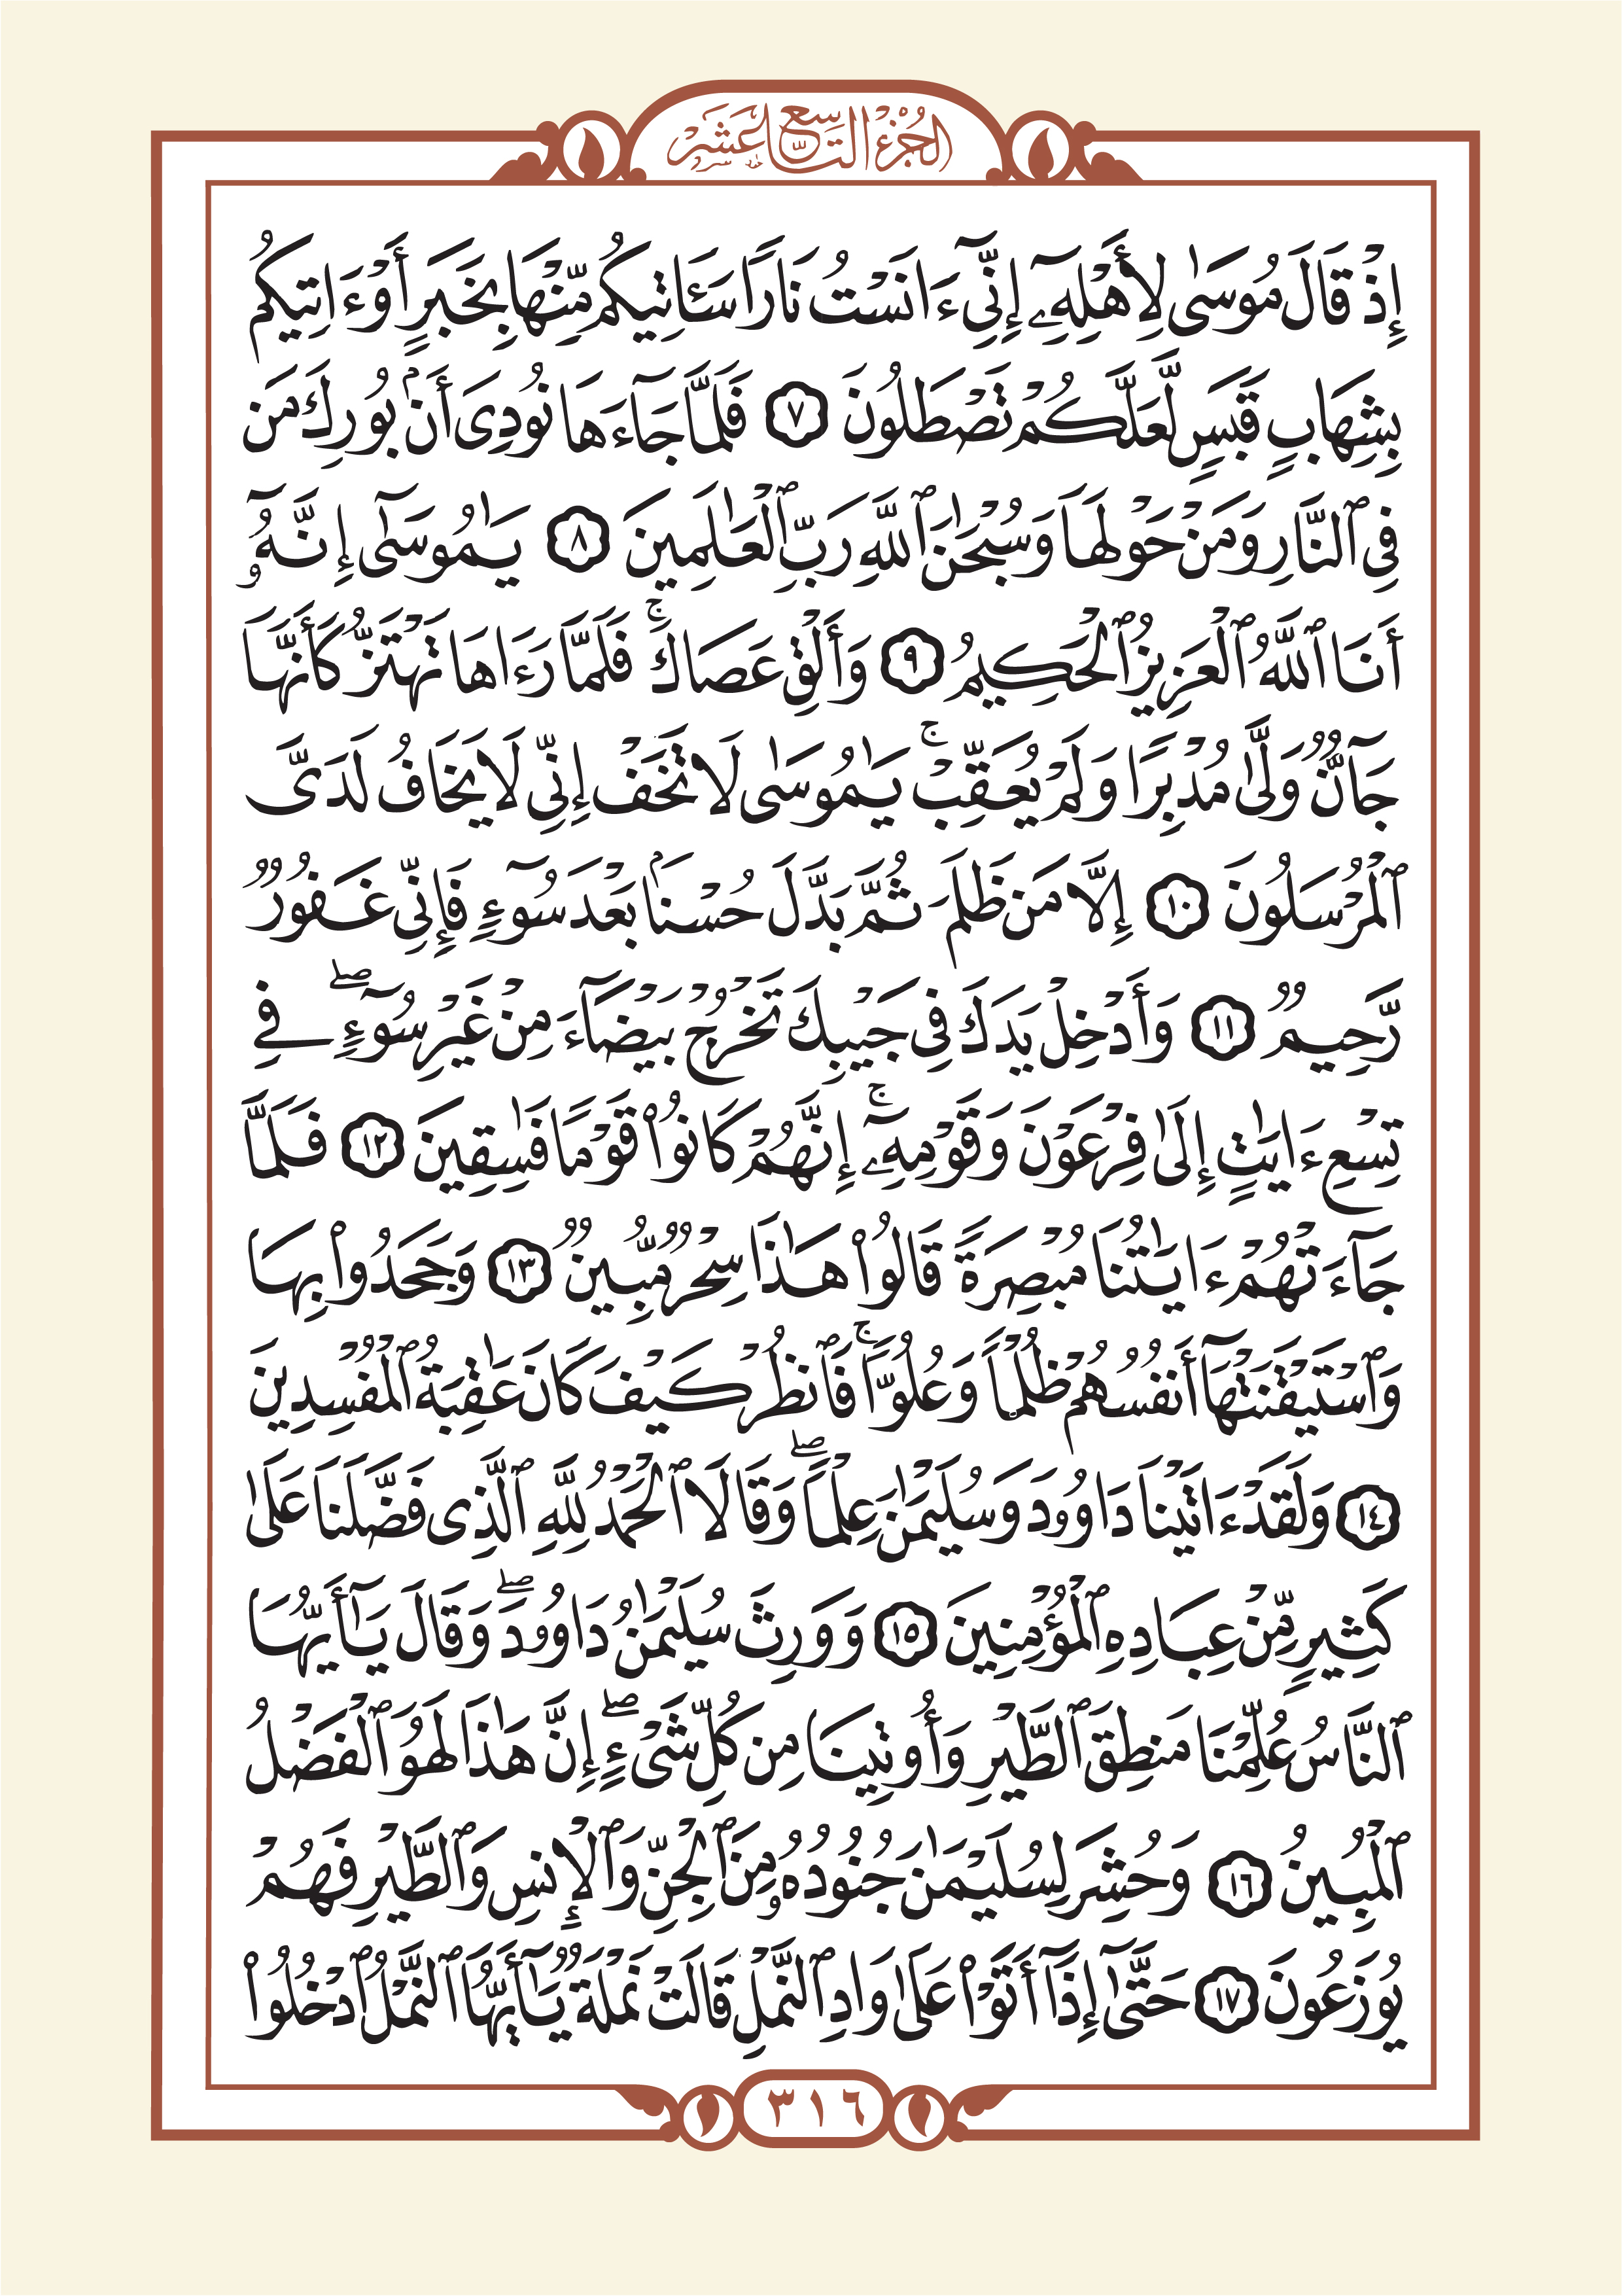 الجزء التاسع عشر
إِذْ قَالَ مُوسَىٰ لِأَهْلِهِۦٓ إِنِّىٓ ءَانَسْتُ نَارًا سَـَٔاتِيكُم مِّنْهَا بِخَبَرٍ أَوْ ءَاتِيكُم
بِشِهَابٍ قَبَسٍ لَّعَلَّكُمْ تَصْطَلُونَ ٧ فَلَمَّا جَآءَهَا نُودِىَ أَنۢ بُورِكَ مَن
فِى ٱلنَّارِ وَمَنْ حَوْلَهَا وَسُبْحَٰنَ ٱللَّهِ رَبِّ ٱلْعَٰلَمِينَ ٨ يَٰمُوسَىٰٓ إِنَّهُۥٓ
أَنَا ٱللَّهُ ٱلْعَزِيزُ ٱلْحَكِيمُ ٩ وَأَلْقِ عَصَاكَ ۚ فَلَمَّا رَءَاهَا تَهْتَزُّ كَأَنَّهَا
جَآنٌّ وَلَّىٰ مُدْبِرًا وَلَمْ يُعَقِّبْ ۚ يَٰمُوسَىٰ لَا تَخَفْ إِنِّى لَا يَخَافُ لَدَىَّ
ٱلْمُرْسَلُونَ ١٠ إِلَّا مَن ظَلَمَ ثُمَّ بَدَّلَ حُسْنًۢا بَعْدَ سُوٓءٍ فَإِنِّى غَفُورٌ
رَّحِيمٌ ١١ وَأَدْخِلْ يَدَكَ فِى جَيْبِكَ تَخْرُجْ بَيْضَآءَ مِنْ غَيْرِ سُوٓءٍ ۖ فِى
تِسْعِ ءَايَٰتٍ إِلَىٰ فِرْعَوْنَ وَقَوْمِهِۦٓ ۚ إِنَّهُمْ كَانُوا۟ قَوْمًا فَٰسِقِينَ ١٢ فَلَمَّا
جَآءَتْهُمْ ءَايَٰتُنَا مُبْصِرَةً قَالُوا۟ هَٰذَا سِحْرٌ مُّبِينٌ ١٣ وَجَحَدُوا۟ بِهَا
وَٱسْتَيْقَنَتْهَآ أَنفُسُهُمْ ظُلْمًا وَعُلُوًّا ۚ فَٱنظُرْ كَيْفَ كَانَ عَٰقِبَةُ ٱلْمُفْسِدِينَ
١٤ وَلَقَدْ ءَاتَيْنَا دَاوُۥدَ وَسُلَيْمَٰنَ عِلْمًا ۖ وَقَالَا ٱلْحَمْدُ لِلَّهِ ٱلَّذِى فَضَّلَنَا عَلَىٰ
كَثِيرٍ مِّنْ عِبَادِهِ ٱلْمُؤْمِنِينَ ١٥ وَوَرِثَ سُلَيْمَٰنُ دَاوُۥدَ ۖ وَقَالَ يَٰٓأَيُّهَا
ٱلنَّاسُ عُلِّمْنَا مَنطِقَ ٱلطَّيْرِ وَأُوتِينَا مِن كُلِّ شَىْءٍ ۖ إِنَّ هَٰذَا لَهُوَ ٱلْفَضْلُ
ٱلْمُبِينُ ١٦ وَحُشِرَ لِسُلَيْمَٰنَ جُنُودُهُۥ مِنَ ٱلْجِنِّ وَٱلْإِنسِ وَٱلطَّيْرِ فَهُمْ
يُوزَعُونَ ١٧ حَتَّىٰٓ إِذَآ أَتَوْا۟ عَلَىٰ وَادِ ٱلنَّمْلِ قَالَتْ نَمْلَةٌ يَٰٓأَيُّهَا ٱلنَّمْلُ ٱدْخُلُوا۟
٣١٦